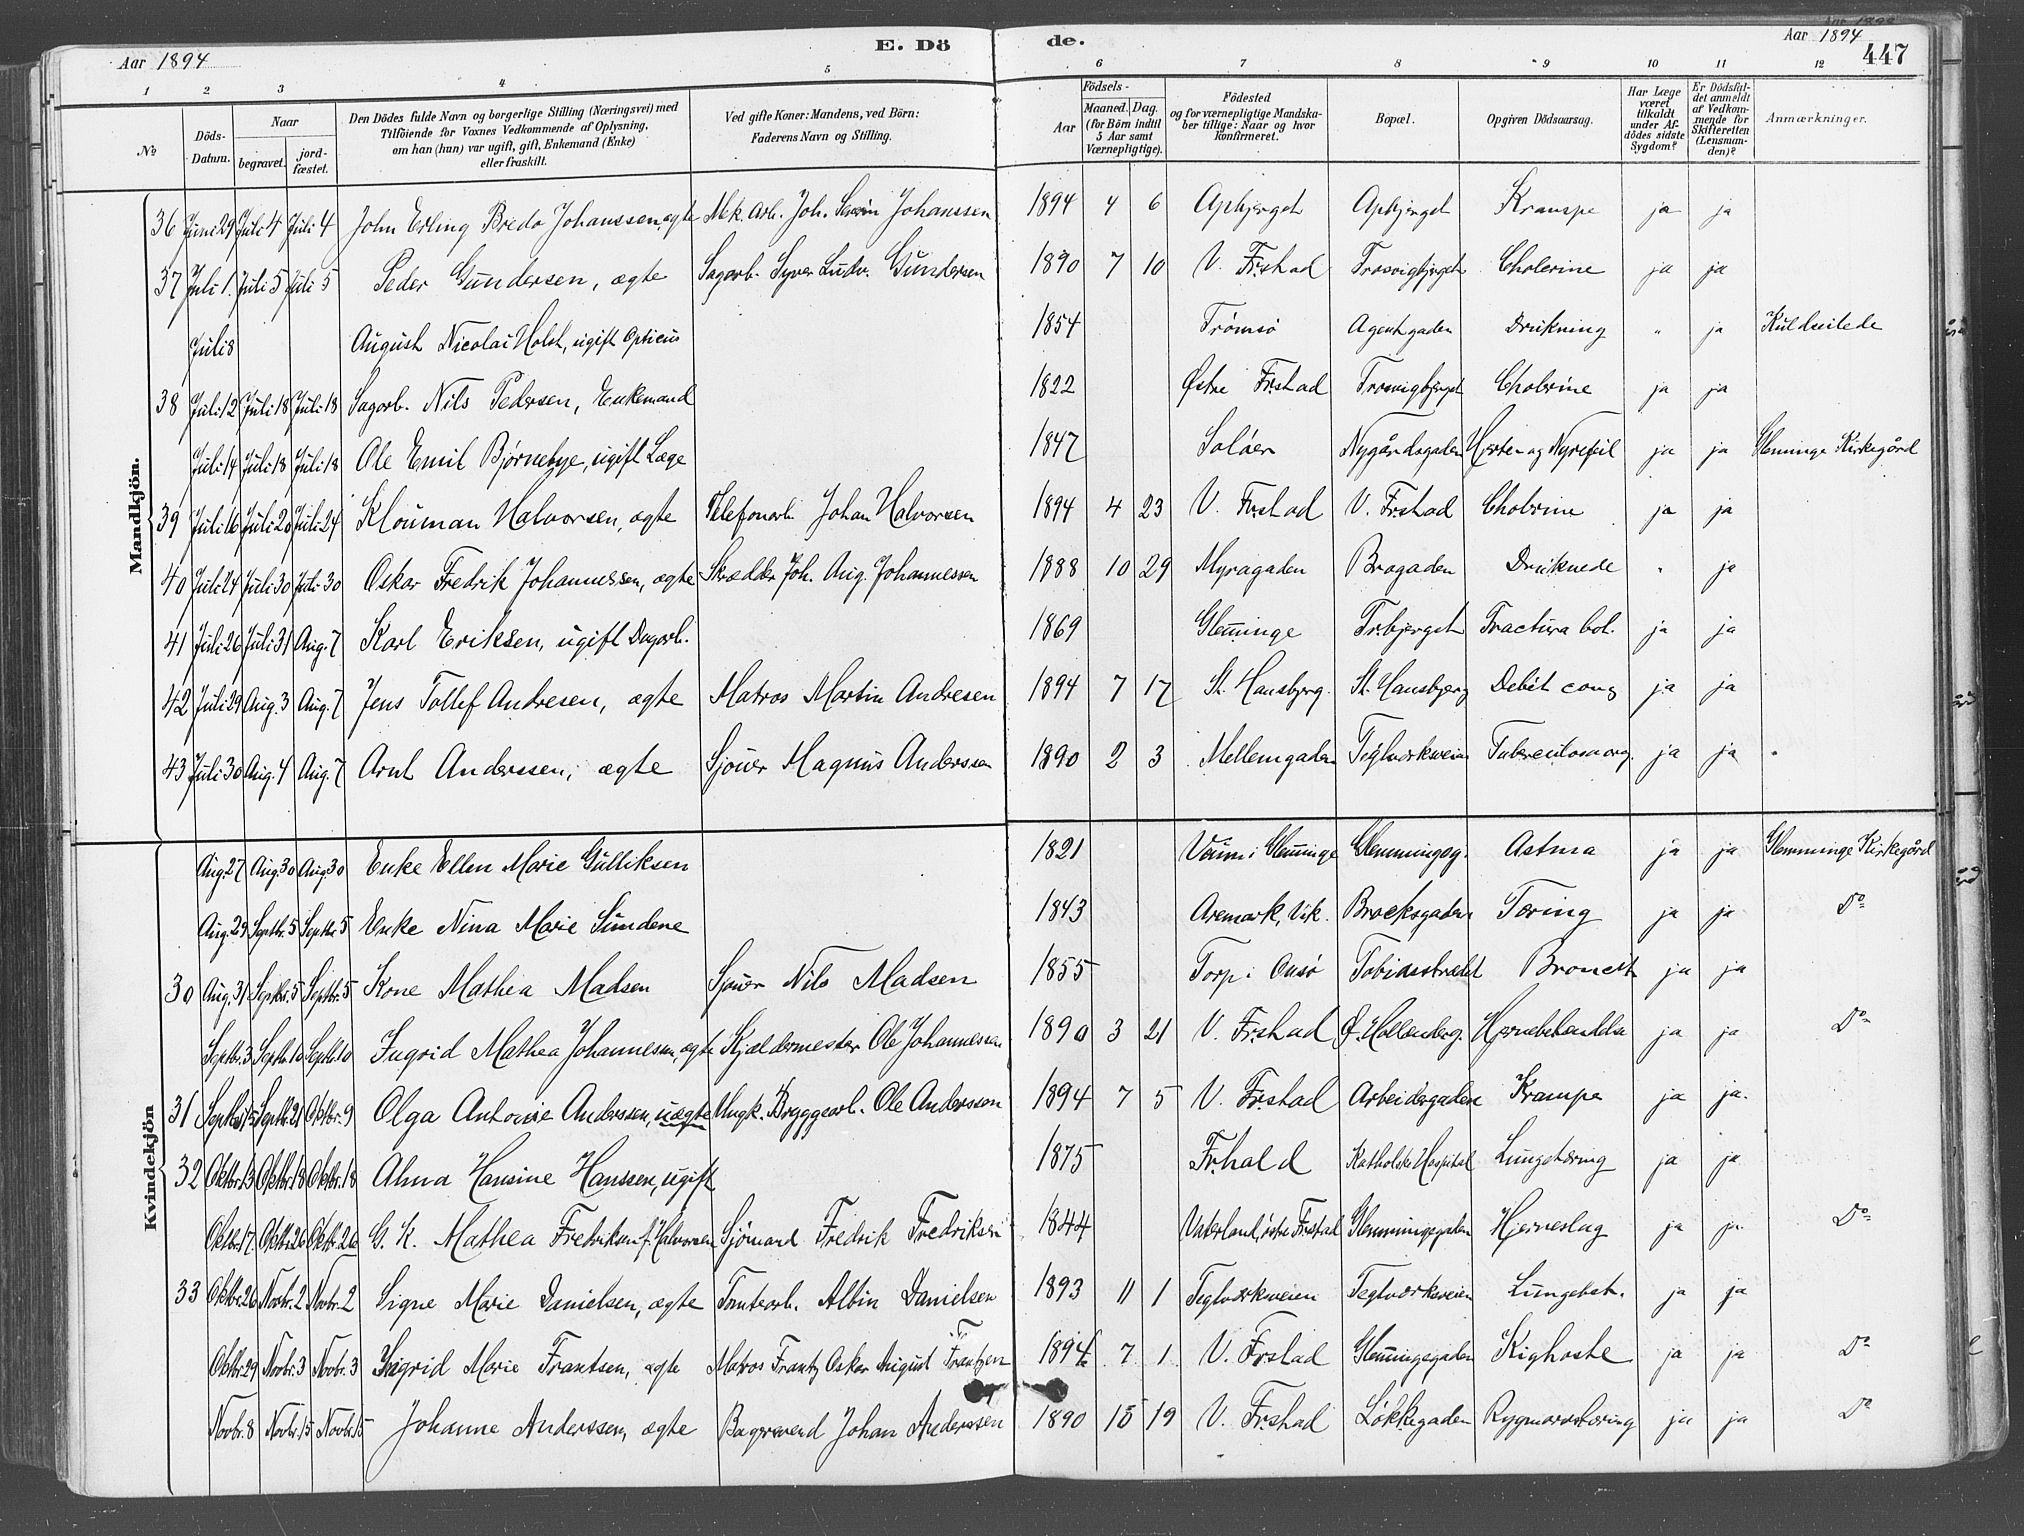 Aar 1894 E. Dö de. Aar 1894 447
1 2 3 4 5 6 7 8 9 10 11 12
№ Döds-Datum. Naar begravet. jord-fæstet. Den Dödes fulde Navn og borgerlige Stilling (Næringsvei) med Tilföiende for Voxnes Vedkommende af Oplysning, om han (hun) var ugift, gift, Enkemand (Enke) eller fraskilt. Ved gifte Koner: Mandens, ved Börn: Faderens Navn og Stilling. Födsels- Aar Maaned. Dag. (for Börn indtil 5 Aar samt Værnepligtige). Födested og for værnepligtige Mandskaber tillige: Naar og hvor konfirmeret. Bopæl. Opgiven Dödsaarsag. Har Læge været tilkaldt under Afdödes sidste Sygdom? Er Dödsfaldet anmeldt af Vedkommende for Skifteretten (Lensmanden)? Anmærkninger.
Mandkjön.
36 Juni 29 Juli 4 Juli 4 John Erling Breda Johanssen, ægte Mek. Arb. Joh. Severin Johanssen 1894 4 6 Apbjerget Apbjerget Krampe ja ja
37 Juli 1. Juli 5 Juli 5 Peder Gundersen, ægte Sagarb. Syver Ludv. Gundersen 1890 7 10 V. Fr.stad Trosvigbjerget Cholerine ja ja
Juli 8 August Nicolai Holst, ugift Opticus 1854 Tromsö Agentgaden Drukning " ja Kuldseilede
38 Juli 12 Juli 18 Juli 18 Sagarb. Nils Pedersen, Enkemand 1822 Østre Fr.stad Trosvigbjerget Cholerine ja ja
Juli 14 Juli 18 Juli 18 Ole Emil Bjørnebye, ugift Læge 1847 Soløer Nygårdsgaden Hjerte- og Nyrefeil ja ja Glemminge Kirkegård
39 Juli 16 Juli 20 Juli 24 Klouman Halvorsen, ægte Telefonarb. Johan Halvorsen 1894 4 23 V. Fr.stad V. Fr.stad Cholerine ja ja
40 Juli 24 Juli 30 Juli 30 Oskar Fredrik Johannessen, ægte Skrædder Joh. Aug. Johannessen 1888 10 29 Myragaden Brogaden Druknede " ja
41 Juli 26 Juli 31 Aug. 7 Karl Eriksen, ugift Dagarb. 1869 Glemminge Tr.bjerget Fractura bol. ja ja
42 Juli 29 Aug. 3 Aug. 7 Jens Tollef Andresen, ægte Matros Martin Andresen 1894 7 17 St. Hansbjerg. St. Hansbjerg Debil. cong ja ja
43 Juli 30 Aug. 4 Aug. 7 Arnt Anderssen, ægte Sjouer Magnus Anderssen 1890 2 3 Mellemgaden Teglværksveien ja ja
Kvindekjön
Aug. 27 Aug. 30 Aug. 30 Enke Ellen Marie Gulliksen 1821 Voum i Glemminge Glemmingeg. Astma ja ja Glemminge Kirkegård
Aug. 29 Septbr. 5 Septbr. 5 Enke Nina Marie Sundene 1843 Aremark, Vik. Brocksgaden Tæring ja ja Do
30 Aug. 31 Septbr. 5 Septbr. 5 Kone Mathea Madsen Sjouer Nils Madsen 1855 Torp i Onsö Tobiasstrædet Bronchit ja ja
Septbr. 3 Septbr. 10 Septbr. 10 Ingrid Mathea Johannessen, ægte Kjældermester Ole Johannessen 1890 3 21 V. Fr.stad Ø. Hollenderg. Hjernebetændelse ja ja Do
31 Septbr. 15 Septbr. 21 Oktbr. 9 Olga Antonie Anderssen, uægte Ungk. Bryggearb. Ole Anderssen 1894 7 5 V. Fr.stad Arbeidergaden Krampe ja ja.
32 Oktbr. 13 Oktbr. 18 Oktbr. 18 Alma Hansine Hanssen, ugift 1875 Fr.hald Katholske Hospital Lungetæring ja ja
Oktbr. 17 Oktbr. 26 Oktbr. 26 G. K. Mathea Fredriksen f. Halvorsen Sjömand Fredrik Fredriksen 1844 Vaterland, östre Fr.stad Glemmingegaden Hjerneslag ja ja Do
33 Oktbr. 26 Novbr. 2 Novbr. 2 Signe Marie Danielsen, ægte Tomtearb. Albin Danielsen 1893 11 1 Teglværksveien Teglværksveien Lungebet. ja ja
Oktbr. 29 Novbr. 3 Novbr. 3 Sigrid Marie Frantsen, ægte Matros Frantz Oskar August Frantzen 1894 7 1 V. Fr.stad Glemmingegaden Kighoste ja ja Do
Novbr. 8 Novbr. 15 Novbr. 15 Johanne Anderssen, ægte Bagersvend Johan Anderssen 1890 10 19 V. Fr.stad Løkkegaden Rygmarvstæring ja ja Do